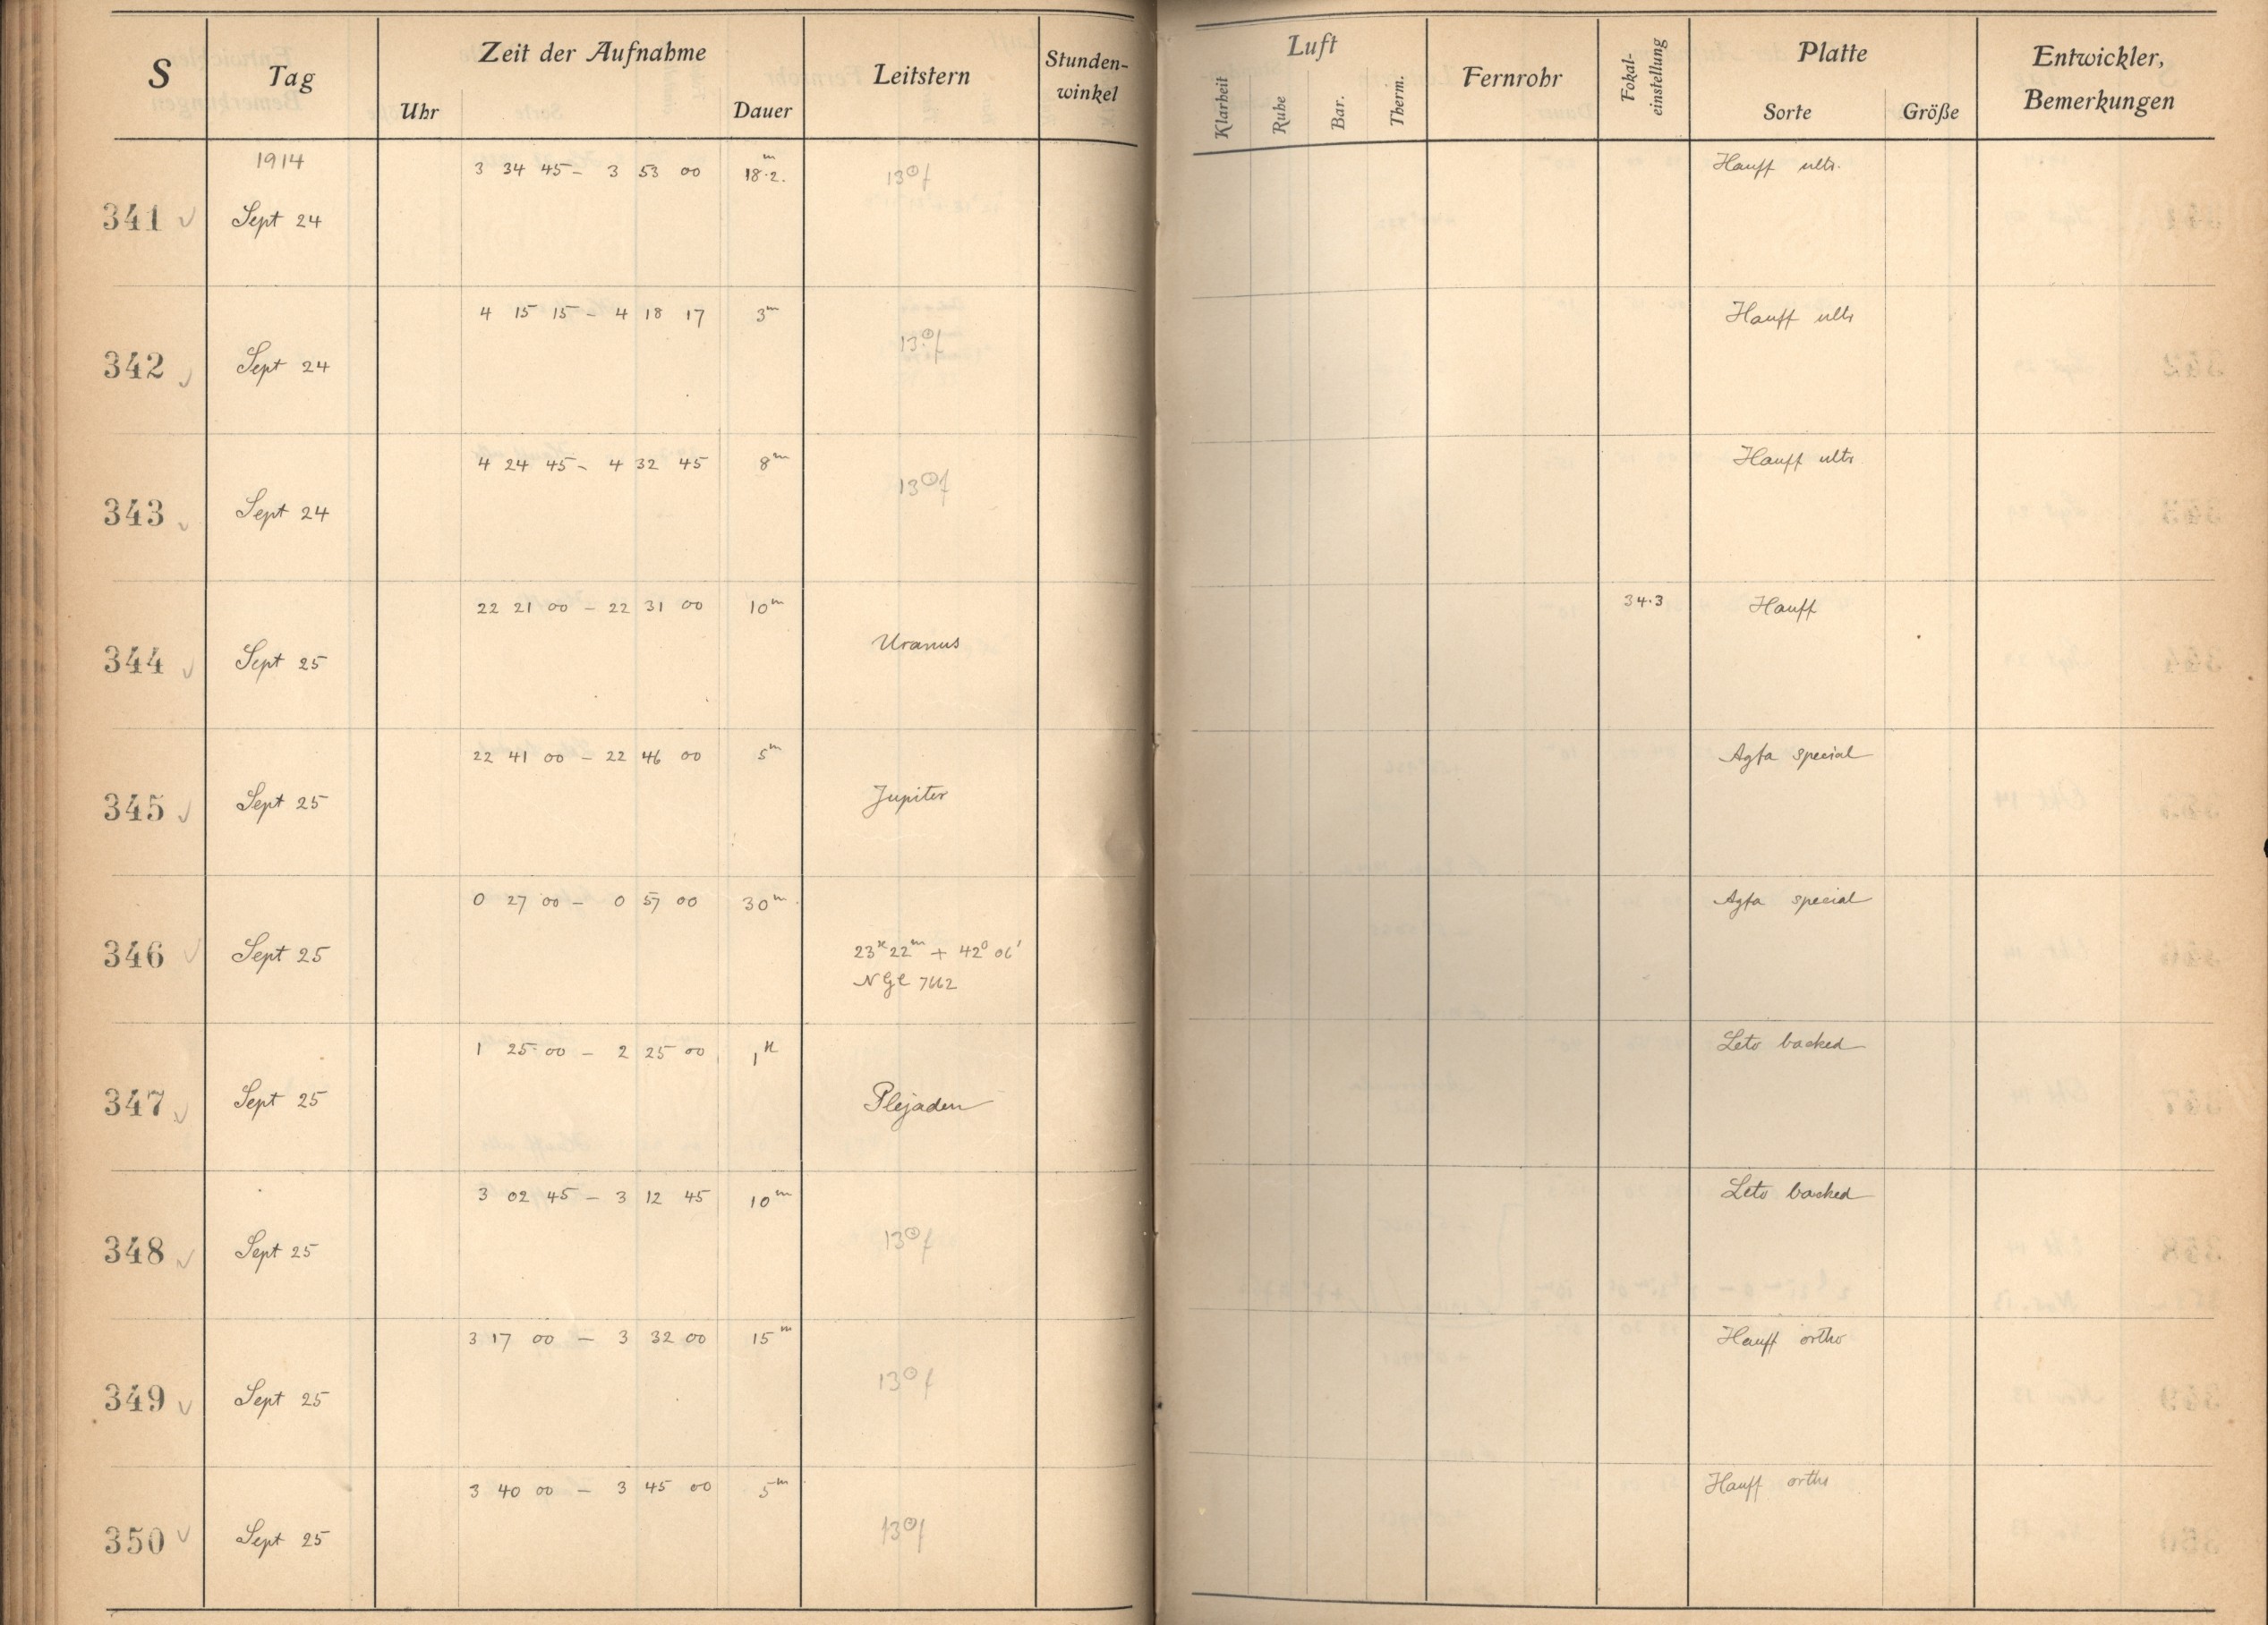 S Tag Zeit der Aufnahme Leitstern Stunden-winkel Luft Fernrohr Fokal-einstellung Platte Entwickler, Bemerkungen
Uhr Dauer Klarheit Ruhe Bar. Therm. Sorte Größe
1914
341 Sept 24 3 34 45 – 3 53 00 18.2.m 13⊙f Hauff ultr.
342 Sept 24 4 15 15 – 4 18 17 3m 13⊙f Hauff ultr
343 Sept 24 4 24 45 – 4 32 45 8m 13⊙f Hauff ultr
344 Sept 25 22 21 00 – 22 31 00 10m Uranus 34.3 Hauff
345 Sept 25 22 41 00 – 22 46 00 5m Jupiter Agfa special
346 Sept 25 0 27 00 – 0 57 00 30m 23h 22m + 42° 06' Agfa special
NGC 7662
347 Sept 25 1 25 00 – 2 25 00 1h Plejaden Leto backed
348 Sept 25 3 02 45 – 3 12 45 10m 13⊙f Leto backed
349 Sept 25 3 17 00 – 3 32 00 15m 13⊙f Hauff ortho
350 Sept 25 3 40 00 – 3 45 00 5m 13⊙f Hauff ortho